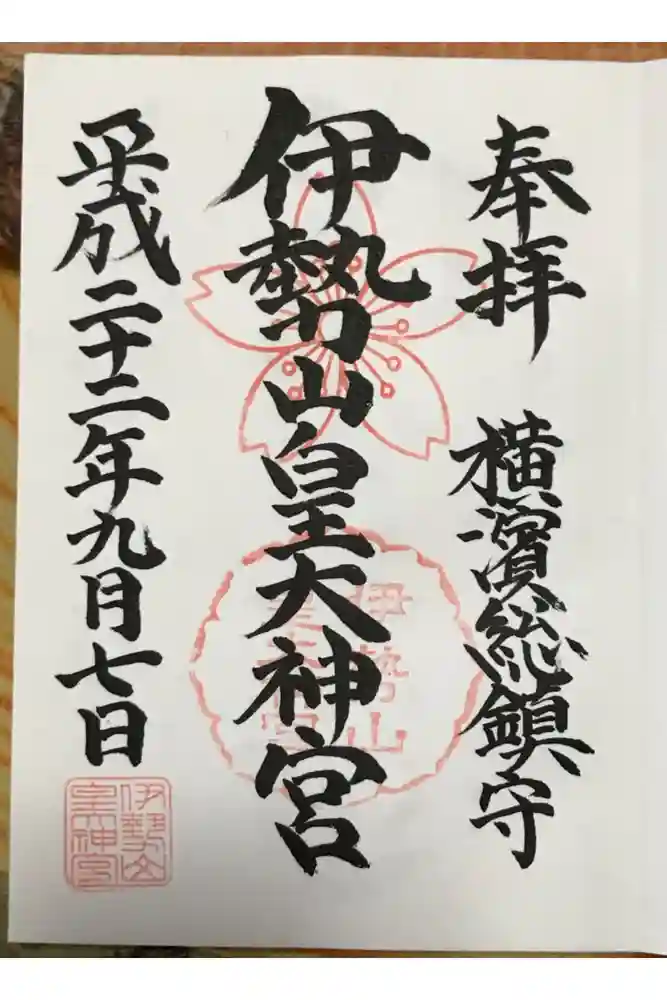 奉拝 横濱総鎮守
伊勢山皇大神宮
平成二十二年九月七日
伊勢山
皇大神宮
伊勢山
皇大神宮